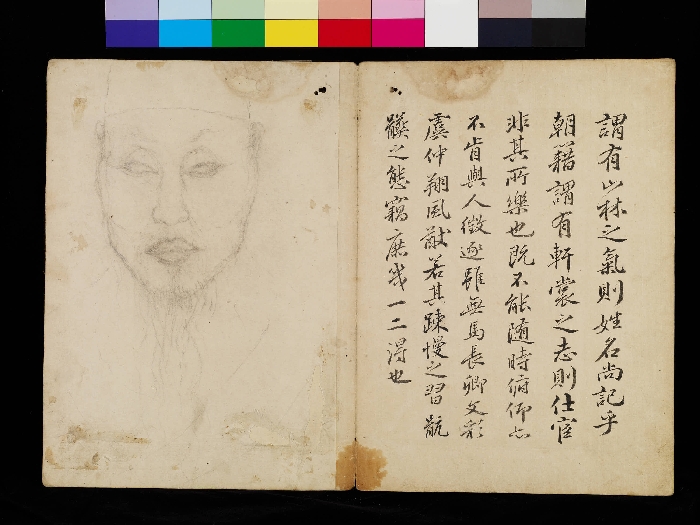 謂有山林之氣則姓名尚記乎
朝籍謂有軒裳之志則仕宦
非其所樂也既不能隨時俯仰亦
不肯與人徵逐雖無馬長卿文彩
虞仲翔風猷若其踈慢之習骯
髒之態竊庶幾一二得也